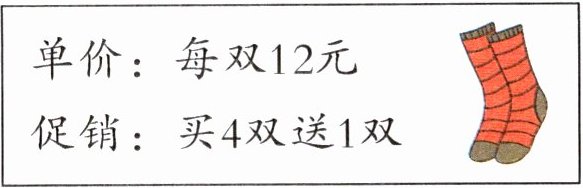 单价：每双12元
促销：买4双送1双